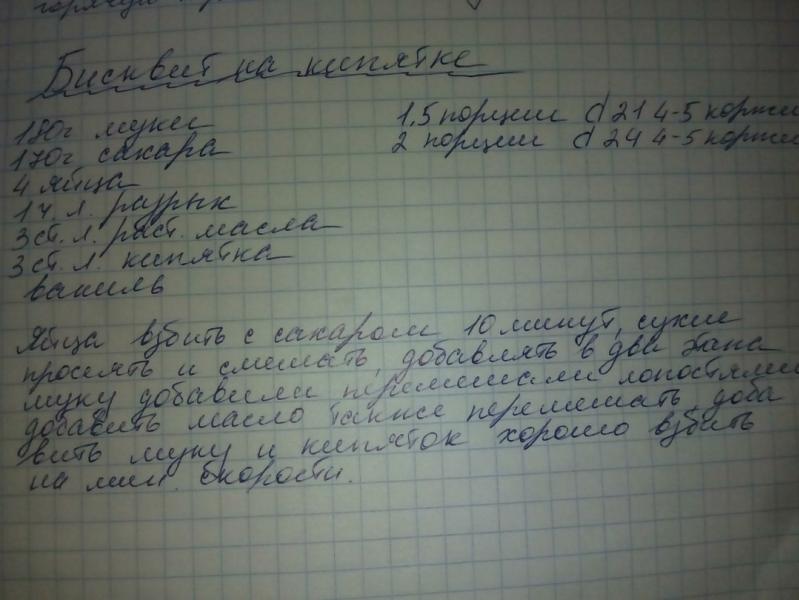 горячую
Бисквит на кипятке
180г муки
170г сахара
4 яйца
1 ч. л. разрых
3 ст. л. раст. масла
3 ст. л. кипятка
ваниль
1,5 порции d 21 4-5 коржей
2 порции d 24 4-5 коржей
Яйца взбить с сахаром 10 минут, сухие
просеять и смешать, добавлять в два этапа
муку добавили перемешали лопостями
добавить масло также перемешать доба
вить муку и кипяток хорошо взбить
на мин. скорости.